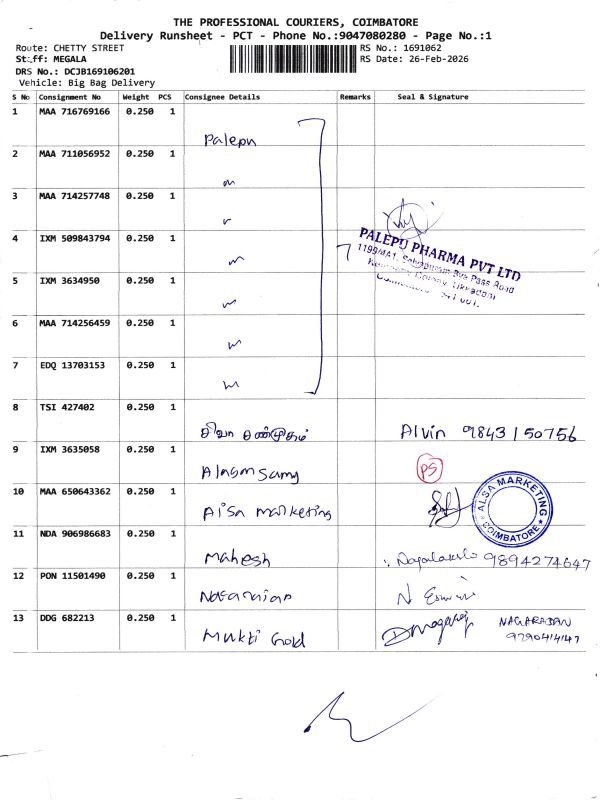 THE PROFESSIONAL COURIERS, COIMBATORE
Delivery Runsheet - PCT - Phone No.:9047080280 - Page No.:1
Route: CHETTY STREET RS No.: 1691062
Staff: MEGALA RS Date: 26-Feb-2026
DRS No.: DCJB169106201
Vehicle: Big Bag Delivery
S No Consignment No Weight PCS Consignee Details Remarks Seal & Signature
1 MAA 716769166 0.250 1 Palepu
2 MAA 711056952 0.250 1
3 MAA 714257748 0.250 1
4 IXM 509843794 0.250 1
PALEPU PHARMA PVT LTD
5 IXM 3634950 0.250 1
6 MAA 714256459 0.250 1
7 EDQ 13703153 0.250 1
8 TSI 427402 0.250 1 சிவா சண்முகம் Alvin 9843150756
9 IXM 3635058 0.250 1 Alagar Samy PS
10 MAA 650643362 0.250 1 Alsa Marketing
ALSA MARKETING
COIMBATORE
11 NDA 906986683 0.250 1 Mahesh 9894274647
12 PON 11501490 0.250 1 N
13 DDG 682213 0.250 1 Mukti Gold NAGARAJAN
9790414147